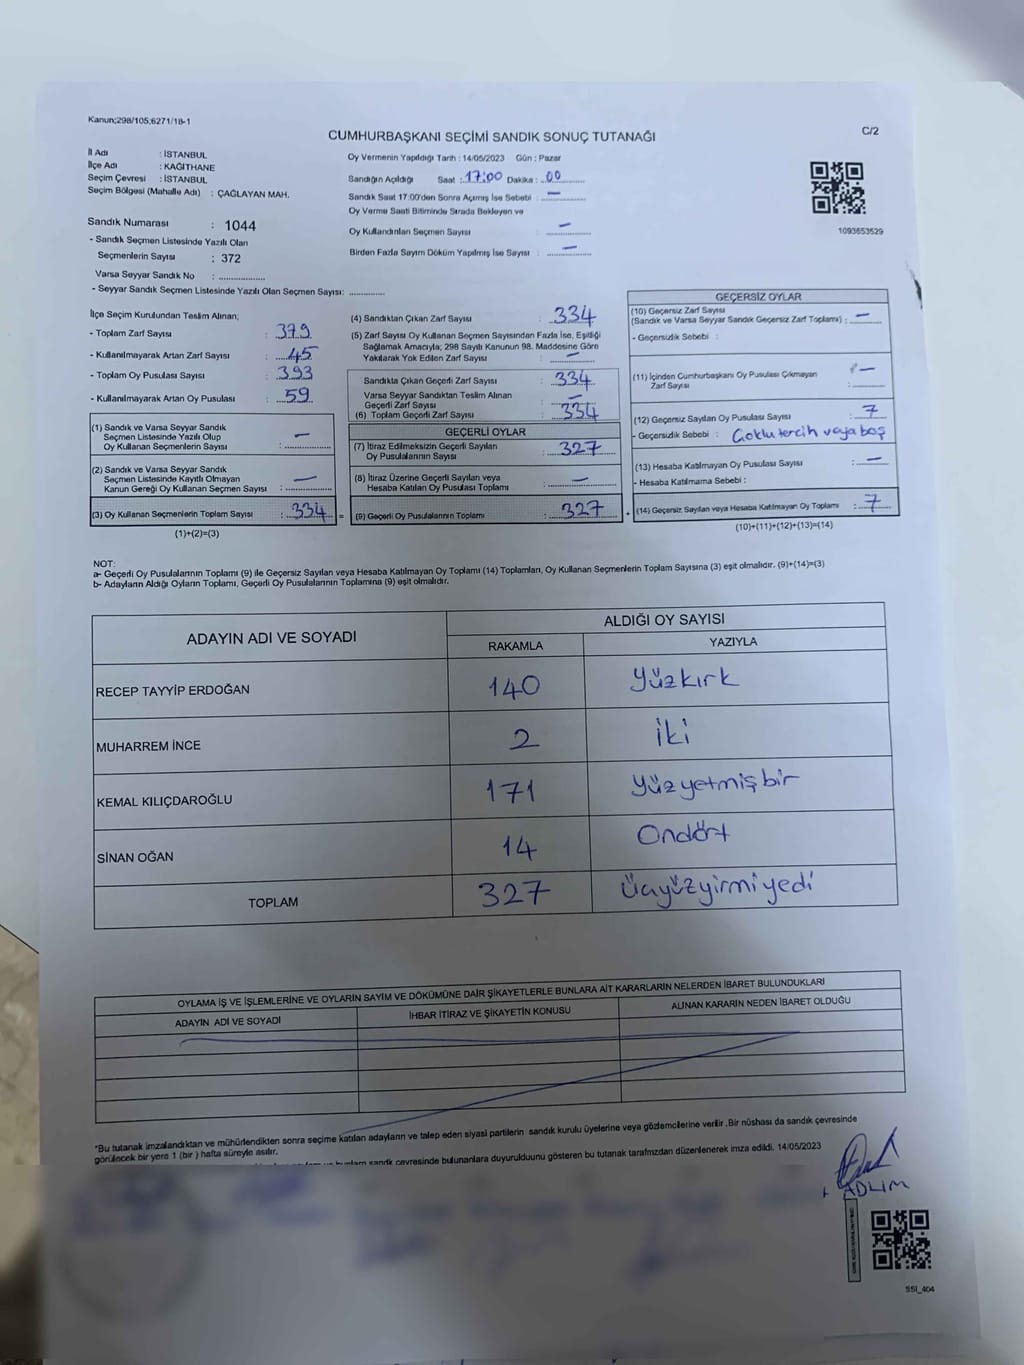 Kanun;298/105;6271/18-1
CUMHURBAŞKANI SEÇİMİ SANDIK SONUÇ TUTANAĞI
C/2
İl Adı : İSTANBUL
İlçe Adı : KAĞITHANE
Seçim Çevresi : İSTANBUL
Seçim Bölgesi (Mahalle Adı) : ÇAĞLAYAN MAH.
Sandık Numarası : 1044
- Sandık Seçmen Listesinde Yazılı Olan
Seçmenlerin Sayısı : 372
Varsa Seyyar Sandık No : ..................
- Seyyar Sandık Seçmen Listesinde Yazılı Olan Seçmen Sayısı: .............
Oy Vermenin Yapıldığı Tarih : 14/05/2023 Gün : Pazar
Sandığın Açıldığı Saat : 17:00 Dakika : 00
Sandık Saat 17:00'den Sonra Açımış İse Sebebi : —
Oy Verme Saati Bitiminde Sırada Bekleyen ve
Oy Kullandırılan Seçmen Sayısı : —
Birden Fazla Sayım Döküm Yapılmış İse Sayısı : —
1093653529
İlçe Seçim Kurulundan Teslim Alınan;
- Toplam Zarf Sayısı : 379
- Kullanılmayarak Artan Zarf Sayısı : 45
- Toplam Oy Pusulası Sayısı : 393
- Kullanılmayarak Artan Oy Pusulası : 59
(1) Sandık ve Varsa Seyyar Sandık
Seçmen Listesinde Yazılı Olup
Oy Kullanan Seçmenlerin Sayısı : —
(2) Sandık ve Varsa Seyyar Sandık
Seçmen Listesinde Kayıtlı Olmayan
Kanun Gereği Oy Kullanan Seçmen Sayısı : —
(3) Oy Kullanan Seçmenlerin Toplam Sayısı : 334 =
(1)+(2)=(3)
(4) Sandıktan Çıkan Zarf Sayısı : 334
(5) Zarf Sayısı Oy Kullanan Seçmen Sayısından Fazla İse, Eşitliği
Sağlamak Amacıyla; 298 Sayılı Kanunun 98. Maddesine Göre
Yakılarak Yok Edilen Zarf Sayısı : —
Sandıkta Çıkan Geçerli Zarf Sayısı : 334
Varsa Seyyar Sandıktan Teslim Alınan
Geçerli Zarf Sayısı : —
(6) Toplam Geçerli Zarf Sayısı : 334
GEÇERLİ OYLAR
(7) İtiraz Edilmeksizin Geçerli Sayılan
Oy Pusulalarının Sayısı : 327
(8) İtiraz Üzerine Geçerli Sayılan veya
Hesaba Katılan Oy Pusulası Toplamı : —
(9) Geçerli Oy Pusulalarının Toplamı : 327 +
GEÇERSİZ OYLAR
(10) Geçersiz Zarf Sayısı
(Sandık ve Varsa Seyyar Sandık Geçersiz Zarf Toplamı) : —
- Geçersizlik Sebebi :
(11) İçinden Cumhurbaşkanı Oy Pusulası Çıkmayan
Zarf Sayısı : —
(12) Geçersiz Sayılan Oy Pusulası Sayısı : 7
- Geçersizlik Sebebi : Çoklu tercih veya boş
(13) Hesaba Katılmayan Oy Pusulası Sayısı : —
- Hesaba Katılmama Sebebi :
(14) Geçersiz Sayılan veya Hesaba Katılmayan Oy Toplamı : 7
(10)+(11)+(12)+(13)=(14)
NOT:
a- Geçerli Oy Pusulalarının Toplamı (9) ile Geçersiz Sayılan veya Hesaba Katılmayan Oy Toplamı (14) Toplamları, Oy Kullanan Seçmenlerin Toplam Sayısına (3) eşit olmalıdır. (9)+(14)=(3)
b- Adayların Aldığı Oyların Toplamı, Geçerli Oy Pusulalarının Toplamına (9) eşit olmalıdır.
ADAYIN ADI VE SOYADI
ALDIĞI OY SAYISI
RAKAMLA YAZIYLA
RECEP TAYYİP ERDOĞAN 140 Yüzkırk
MUHARREM İNCE 2 İki
KEMAL KILIÇDAROĞLU 171 Yüzyetmişbir
SİNAN OĞAN 14 Ondört
TOPLAM 327 Üçyüzyirmiyedi
OYLAMA İŞ VE İŞLEMLERİNE VE OYLARIN SAYIM VE DÖKÜMÜNE DAİR ŞİKAYETLERLE BUNLARA AİT KARARLARIN NELERDEN İBARET BULUNDUKLARI
ADAYIN ADI VE SOYADI İHBAR İTİRAZ VE ŞİKAYETİN KONUSU ALINAN KARARIN NEDEN İBARET OLDUĞU
*Bu tutanak imzalandıktan ve mühürlendikten sonra seçime katılan adayların ve talep eden siyasi partilerin sandık kurulu üyelerine veya gözlemcilerine verilir. Bir nüshası da sandık çevresinde
görülecek bir yere 1 (bir ) hafta süreyle asılır.
sandık çevresinde bulunanlara duyurulduunu gösteren bu tutanak tarafımızdan düzenlenerek imza edildi. 14/05/2023
SSI_404